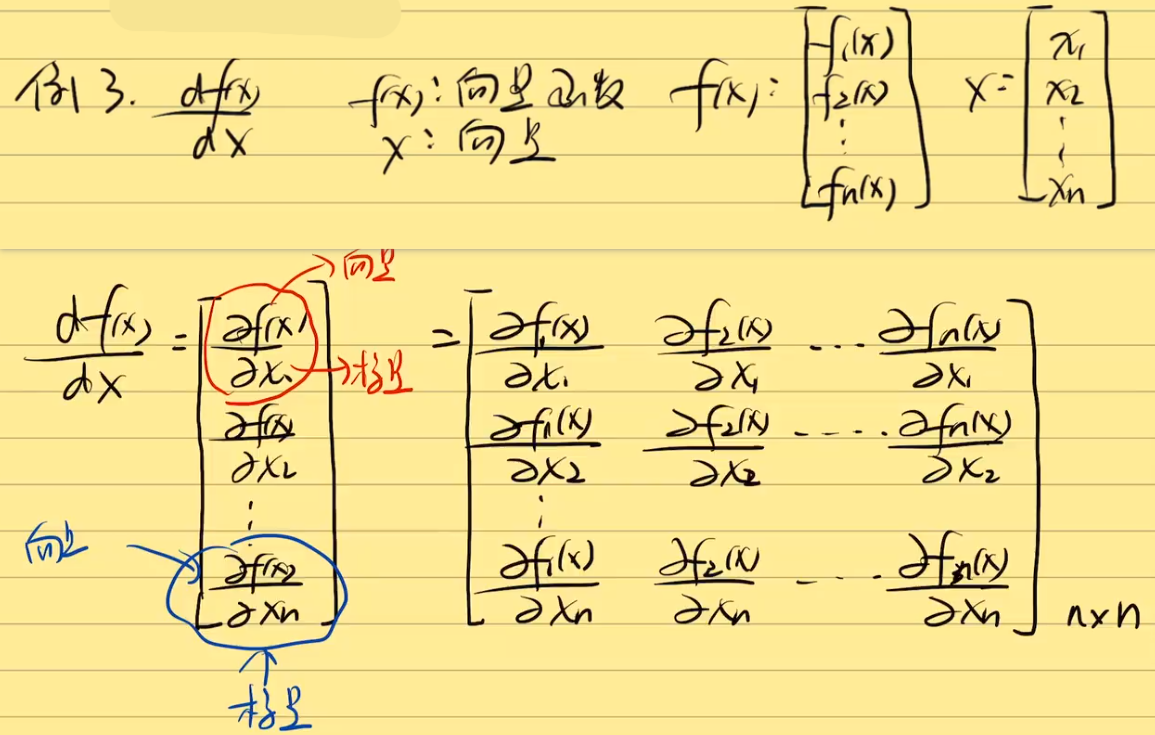 例3. df(x)/dX f(x):向量函数 f(x): [f₁(x) f₂(x) ⋮ fn(x)] X= [x₁ x₂ ⋮ xn]
X:向量
→向量
df(x)/dX = [∂f(x)/∂x₁ ∂f(x)/∂x₂ ⋮ ∂f(x)/∂xn] = [∂f₁(x)/∂x₁ ∂f₂(x)/∂x₁ ... ∂fn(x)/∂x₁
→标量
∂f₁(x)/∂x₂ ∂f₂(x)/∂x₂ ..... ∂fn(x)/∂x₂
⋮
向量
∂f₁(x)/∂xn ∂f₂(x)/∂xn .... ∂fn(x)/∂xn] n×n
标量